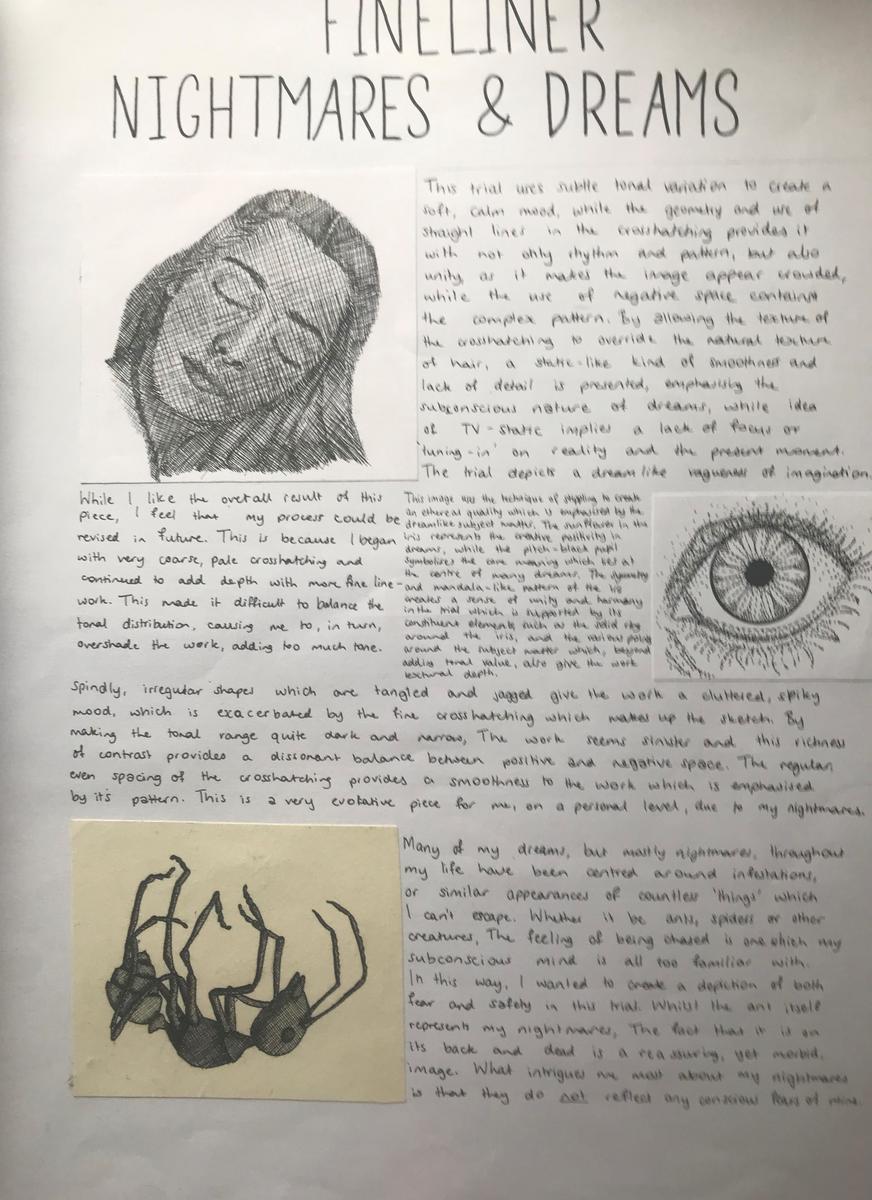 FINELINER
NIGHTMARES & DREAMS
This trial uses subtle tonal variation to create a
soft, calm mood, while the geometry and use of
straight lines in the crosshatching provides it
with not only rhythm and pattern, but also
unity, as it makes the image appear crowded,
while the use of negative space contains
the complex pattern. By allowing the texture of
the crosshatching to override the natural texture
of hair, a static-like kind of smoothness and
lack of detail is presented, emphasising the
subconscious nature of dreams, while idea
of TV-static implies a lack of focus or
'tuning-in' on reality and the present moment.
The trial depicts a dreamlike vagueness of imagination.
While I like the overall result of this
piece, I feel that my process could be
revised in future. This is because I began
with very coarse, pale crosshatching and
continued to add depth with more fine line-
work. This made it difficult to balance the
tonal distribution, causing me to, in turn,
overshade the work, adding too much tone.
This image uses the technique of stippling to create
an ethereal quality which is emphasised by the
dreamlike subject matter. The sunflower in the
iris represents the creative positivity in
dreams, while the pitch-black pupil
symbolises the core meaning which lies at
the centre of many dreams. The symmetry
and mandala-like pattern of the iris
creates a sense of unity and harmony
in the trial which is supported by its
constituent elements such as the solid ring
around the iris, and the various points
around the subject matter which, beyond
adding tonal value, also give the work
textural depth.
Spindly, irregular shapes which are tangled and jagged give the work a cluttered, spiky
mood, which is exacerbated by the fine crosshatching which makes up the sketch. By
making the tonal range quite dark and narrow, The work seems sinister and this richness
of contrast provides a dissonant balance between positive and negative space. The regular,
even spacing of the crosshatching provides a smoothness to the work which is emphasised
by it's pattern. This is a very evokative piece for me, on a personal level, due to my nightmares.
Many of my dreams, but mostly nightmares, throughout
my life have been centred around infestations,
or similar appearances of countless 'things' which
I can't escape. Whether it be ants, spiders or other
creatures, The feeling of being chased is one which my
subconscious mind is all too familiar with.
In this way, I wanted to create a depiction of both
fear and safety in this trial. Whilst the ant itself
represents my nightmares, The fact that it is on
its back and dead is a reassuring, yet morbid,
image. What intrigues me most about my nightmares
is that they do not reflect any conscious fears of mine.